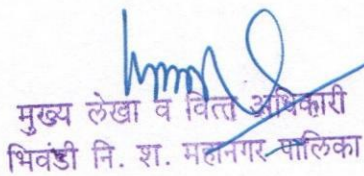 मुख्य लेखा व वित्त अधिकारी
भिवंडी नि. श. महानगर पालिका